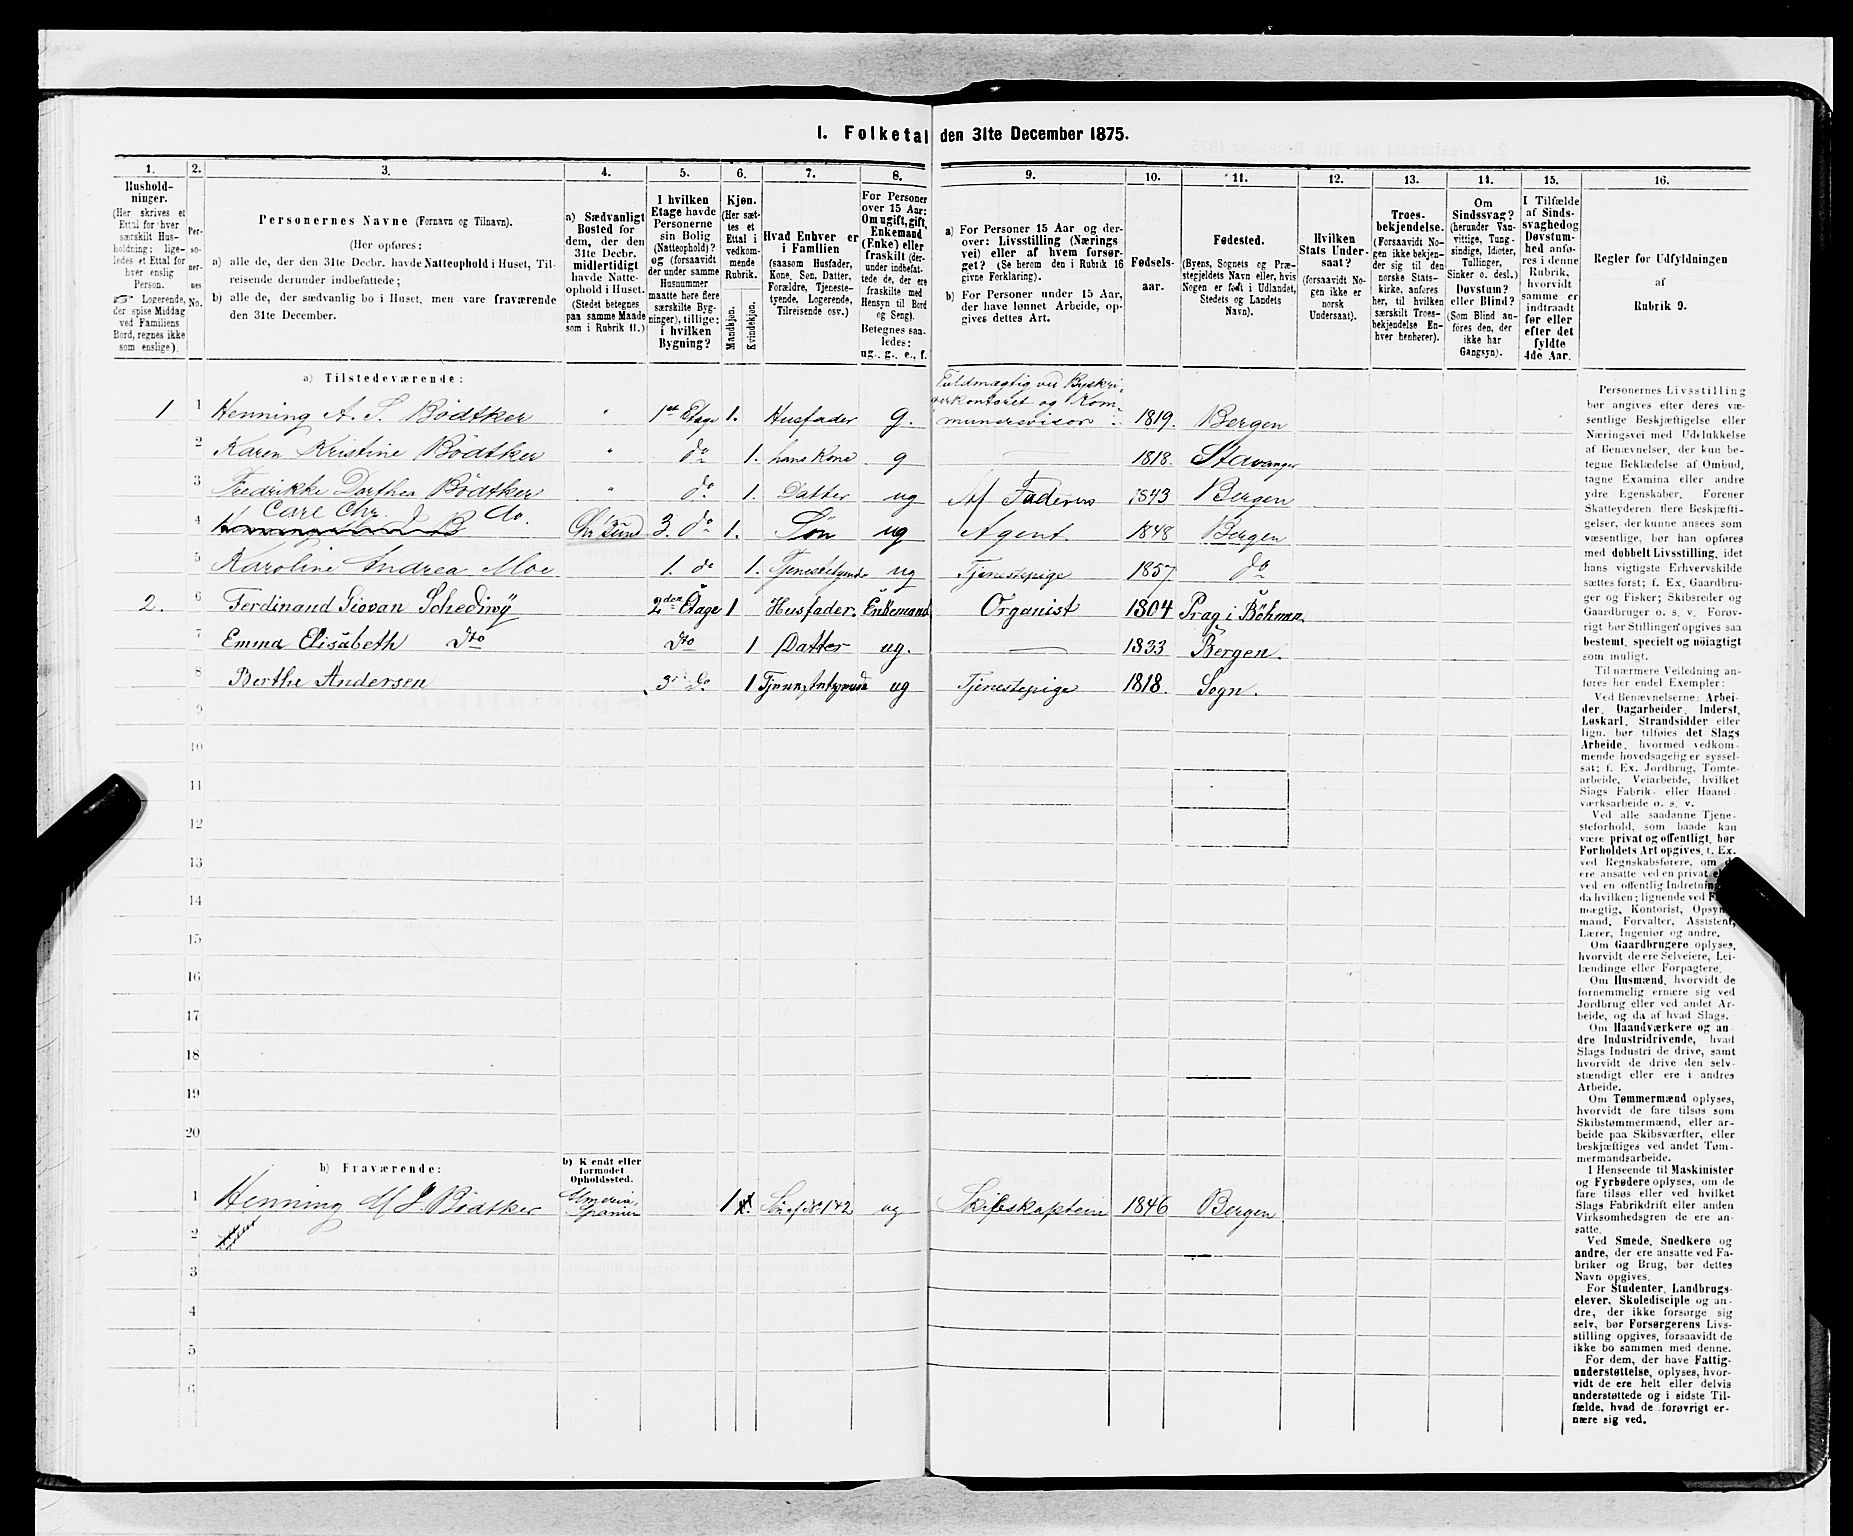 I. Folketal den 31te December 1875.
1.
Hushold-
ninger.
(Her skrives et
Ettal for hver
særskilt Hus-
holdning; lige-
ledes et Ettal for
hver enslig
Person.
☞ Logerende,
der spise Middag
ved Familiens
Bord, regnes ikke
som enslige).
2.
Per-
so-
ner-
nes
No.
3.
Personernes Navne (Fornavn og Tilnavn).
(Her opføres:
a) alle de, der den 31te Decbr. havde Natteophold i Huset, Til-
reisende derunder indbefattede;
b) alle de, der sædvanlig bo i Huset, men vare fraværende
den 31te December.
4.
a) Sædvanligt
Bosted for
dem, der den
31te Decbr.
midlertidigt
havde Natte-
ophold i Huset.
(Stedet betegnes
paa samme Maade
som i Rubrik 11.)
5.
I hvilken
Etage havde
Personerne
sin Bolig
(Natteophold)?
og (forsaavidt
der under samme
Husnummer
maatte høre flere
særskilte Byg-
ninger), tillige:
i hvilken
Bygning?
6.
Kjøn.
(Her sæt-
tes et
Ettal i
vedkom-
mende
Rubrik.
Mandkjøn.
Kvindekjøn.
7.
Hvad Enhver er
i Familien
(saasom Husfader,
Kone, Søn, Datter,
Forældre, Tjeneste-
tyende, Logerende,
Tilreisende osv.)
8.
For Personer
over 15 Aar:
Om ugift, gift,
Enkemand
(Enke) eller
fraskilt (der-
under indbefat-
tede de, der ere
fraskilte med
Hensyn til Bord
og Seng).
Betegnes saa-
ledes:
ug., g., e., f.
9.
a) For Personer 15 Aar og der-
over: Livsstilling (Nærings
vei) eller af hvem forsør-
get? (Se herom den i Rubrik 16
givne Forklaring).
b) For Personer under 15 Aar,
der have lønnet Arbeide, op-
gives dettes Art.
10.
Fødsels-
aar.
11.
Fødested.
(Byens, Sognets og Præ-
stegjeldets Navn eller, hvis
Nogen er født i Udlandet,
Stedets og Landets
Navn).
12.
Hvilken
Stats Under-
saat?
(forsaavidt No-
gen ikke er
norsk
Undersaat).
13.
Troes-
bekjendelse.
(Forsaavidt No-
gen ikke bekjen-
der sig til den
norske Stats-
kirke, anføres
her, til hvilken
særskilt Troes-
bekjendelse En-
hver henhører).
14.
Om
Sindssvag?
(herunder Van-
vittige, Tung-
sindige, Idioter,
Tullinger,
Sinker o. desl.)
Døvstum?
eller Blind?
(Som Blind an-
føres den, der
ikke har
Gangsyn).
15.
I Tilfælde
af Sinds-
svaghed og
Døvstum-
hed anfø-
res i denne
Rubrik,
hvorvidt
samme er
indtraadt
før eller
efter det
fyldte
4de Aar.
16.
Regler for Udfyldningen
af
Rubrik 9.
a) Tilstedeværende:
1 1 Henning A. S. Bödtker " 1ste Etage 1. Husfader g. Fuldmægtig ved Byskri-
verkontoret og Kom-
munerevisor. 1819. Bergen
2 Karen Kristine Bödtker " do 1. hans Kone g — 1818. Stavanger
3 Fredrikke Dorthea Bödtker " do. 1. Datter ug Af Faderen 1843 Bergen
Carl Chr. do.
4 B Chr sund 3. do 1. Søn ug Agent. 1848 Bergen
5 Karoline Andrea Moe 1. do 1. Tjenestetyende ug Tjenestepige 1857 do
2. 6 Ferdinand Giovan Schediwÿ 2den Etage 1 Husfader. Enkemand Organist 1804 Prag i Böhmen.
7 Emma Elisabeth dto dto 1 Datter ug. — 1833 Bergen.
8 Berthe Andersen 3 do 1 Tjenestetyende ug Tjenestepige 1818. Sogn.
9
10
11
12
13
14
15
16
17
18
19
20
b) Fraværende:
b) Kjendt eller
formodet
Opholdssted.
1 Henning M S. Bödtker Almeria, Spanien 1 Søn af No 1 & 2 ug Skibskaptein 1846 Bergen
2
3
4
5
6
Personernes Livsstilling
bør angives efter deres væ-
sentlige Beskjæftigelse eller
Næringsvei med Udelukkelse
af Benævnelser, der kun be-
tegne Beklædelse af Ombud,
tagne Examina eller andre
ydre Egenskaber. Forener
Skatteyderen flere Beskjæfti-
gelser, der kunne ansees som
væsentlige, bør han opføres
med dobbelt Livsstilling, idet
hans vigtigste Erhvervskilde
sættes først; f. Ex. Gaardbru-
ger og Fisker; Skibsreder og
Gaardbruger o. s. v. Forøv-
rigt bør Stillingen opgives saa
bestemt, specielt og nöiagtigt
som muligt.
Til nærmere Veiledning an-
føres her endel Exempler:
Ved Benævnelserne: Arbei-
der, Dagarbeider, Inderst,
Løskarl, Strandsidder eller
lign. bør tilføies det Slags
Arbeide, hvormed vedkom-
mende hovedsagelig er syssel-
sat; f. Ex. Jordbrug, Tomte-
arbeide, Veiarbeide, hvilket
Slags Fabrik- eller Haand-
værksarbeide o. s. v.
Ved alle saadanne Tjene-
steforhold, som baade kan
være privat og offentligt, bør
Forholdets Art opgives, t. Ex.
ved Regnskabsførere, om
ere ansatte ved en privat
ved en offentlig Indretning
da hvilken; lignende ved
mægtig, Kontorist,
mand, Forvalter, Assistent,
Lærer, Ingeniør og andre.
Om Gaardbrugere oplyses,
hvorvidt de ere Selveiere, Lei-
lændinge eller Forpagtere.
Om Husmænd, hvorvidt de
fornemmelig ernære sig ved
Jordbrug eller ved andet Ar-
beide, og da af hvad Slags.
Om Haandværkere og an
dre Industridrivende, hvad
Slags Industri de drive, samt
hvorvidt de drive den selv-
stændigt eller ere i andres
Arbeide.
Om Tømmermænd oplyses,
hvorvidt de fare tilsøs som
Skibstømmermænd, eller ar-
beide paa Skibsværfter, eller
beskjæftiges ved andet Tøm-
mermandsarbeide.
I Henseende til Maskinister
og Fyrbødere oplyses, om de
fare tilsøs eller ved hvilket
Slags Fabrikdrift eller anden
Virksomhedsgren de ere an-
satte.
Ved Smede, Snedkere og
andre, der ere ansatte ved Fa-
briker og Brug, bør dettes
Navn opgives.
For Studenter, Landbrugs-
elever, Skoledisciple og an-
dre, der ikke forsørge sig
selv, bør Forsørgerens Livs-
stilling opgives, forsaavidt de
ikke bo sammen med denne.
For dem, der have Fattig-
understøttelse, oplyses, hvor-
vidt de ere helt eller delvis
understøttede og i sidste Til-
fælde, hvad de forøvrigt er-
nære sig ved.